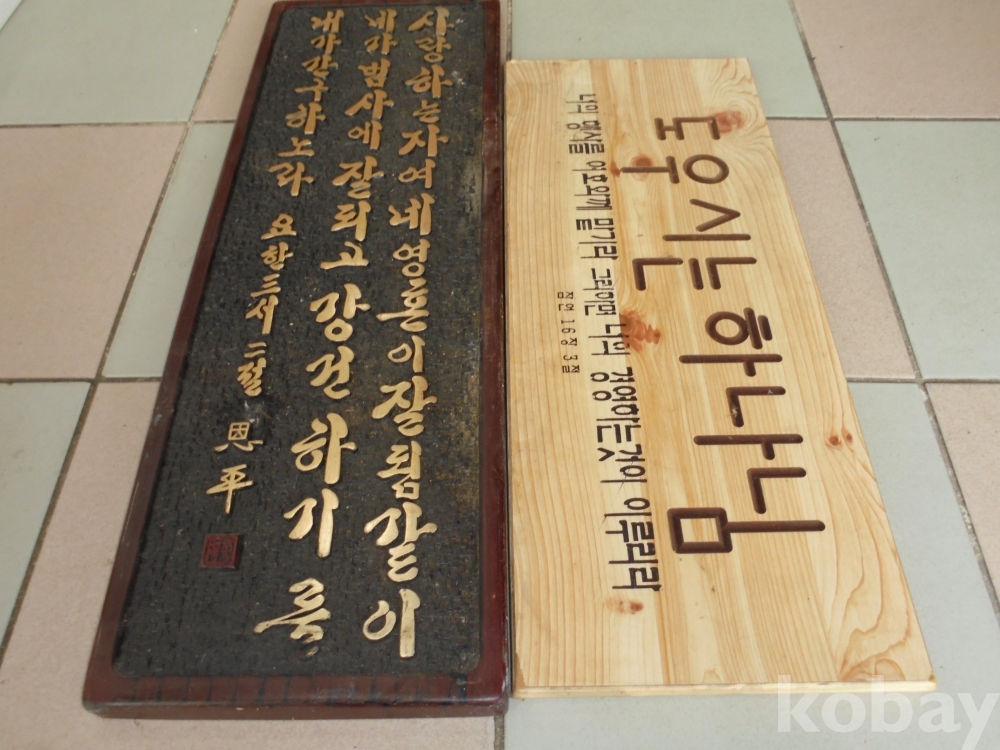 사랑하는자여네영혼이잘됨같이
네가범사에잘되고강건하기를
내가간구하노라
요한三서二절
恩平
도우시는 하나님
너의 행사를 여호와께 맡기라 그리하면 너의 경영하는것이 이루리라
잠언 16장 3절
kobay